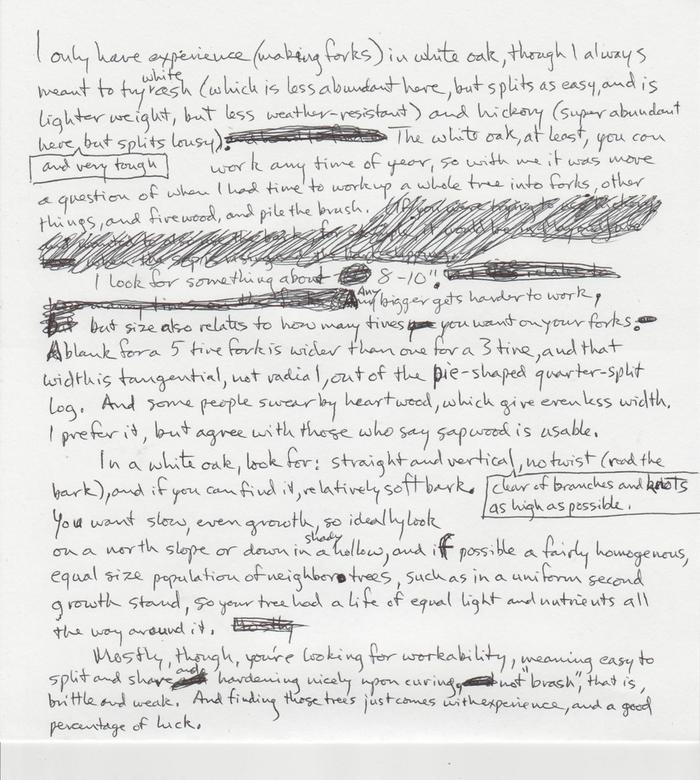 I only have experience (making forks) in white oak, though I always
meant to try white ash (which is less abundant here, but splits as easy, and is
lighter weight, but less weather-resistant) and hickory (super abundant
here, but splits lousy). The white oak, at least, you can
and very tough
work any time of year, so with me it was more
a question of when I had time to work up a whole tree into forks, other
things, and firewood, and pile the brush.
I look for something about 8-10".
Any bigger gets harder to work,
but size also relates to how many tines you want on your forks.
A blank for a 5 tine fork is wider than one for a 3 tine, and that
width is tangential, not radial, out of the pie-shaped quarter-split
log. And some people swear by heartwood, which give even less width.
I prefer it, but agree with those who say sapwood is usable.
In a white oak, look for: straight and vertical, no twist (read the
bark), and if you can find it, relatively soft bark.
clear of branches and knots
as high as possible.
You want slow, even growth, so ideally look
on a north slope or down in a shady hollow, and if possible a fairly homogenous,
equal size population of neighbor trees, such as in a uniform second
growth stand, so your tree had a life of equal light and nutrients all
the way around it.
Mostly, though, you're looking for workability, meaning easy to
split and shave and hardening nicely upon curing, not "brash", that is,
brittle and weak. And finding those trees just comes with experience, and a good
percentage of luck.